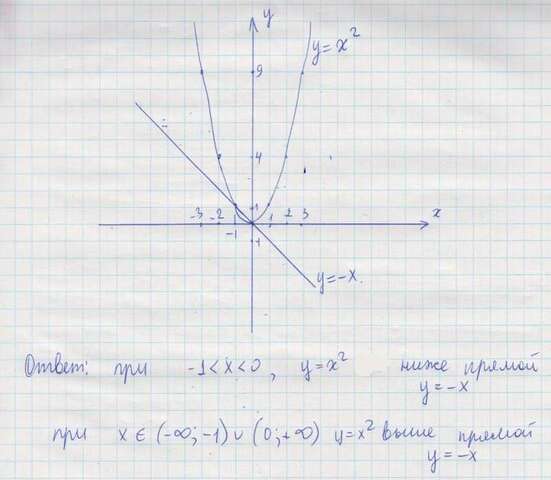 y
y = x²
9
4
1
-3 -2 1 1 2 3 x
-1
1
y = -x.
Ответ: при -1 < x < 0, y = x² ниже прямой
y = -x
при x ∈ (-∞; -1) ∪ (0; +∞) y = x² выше прямой
y = -x